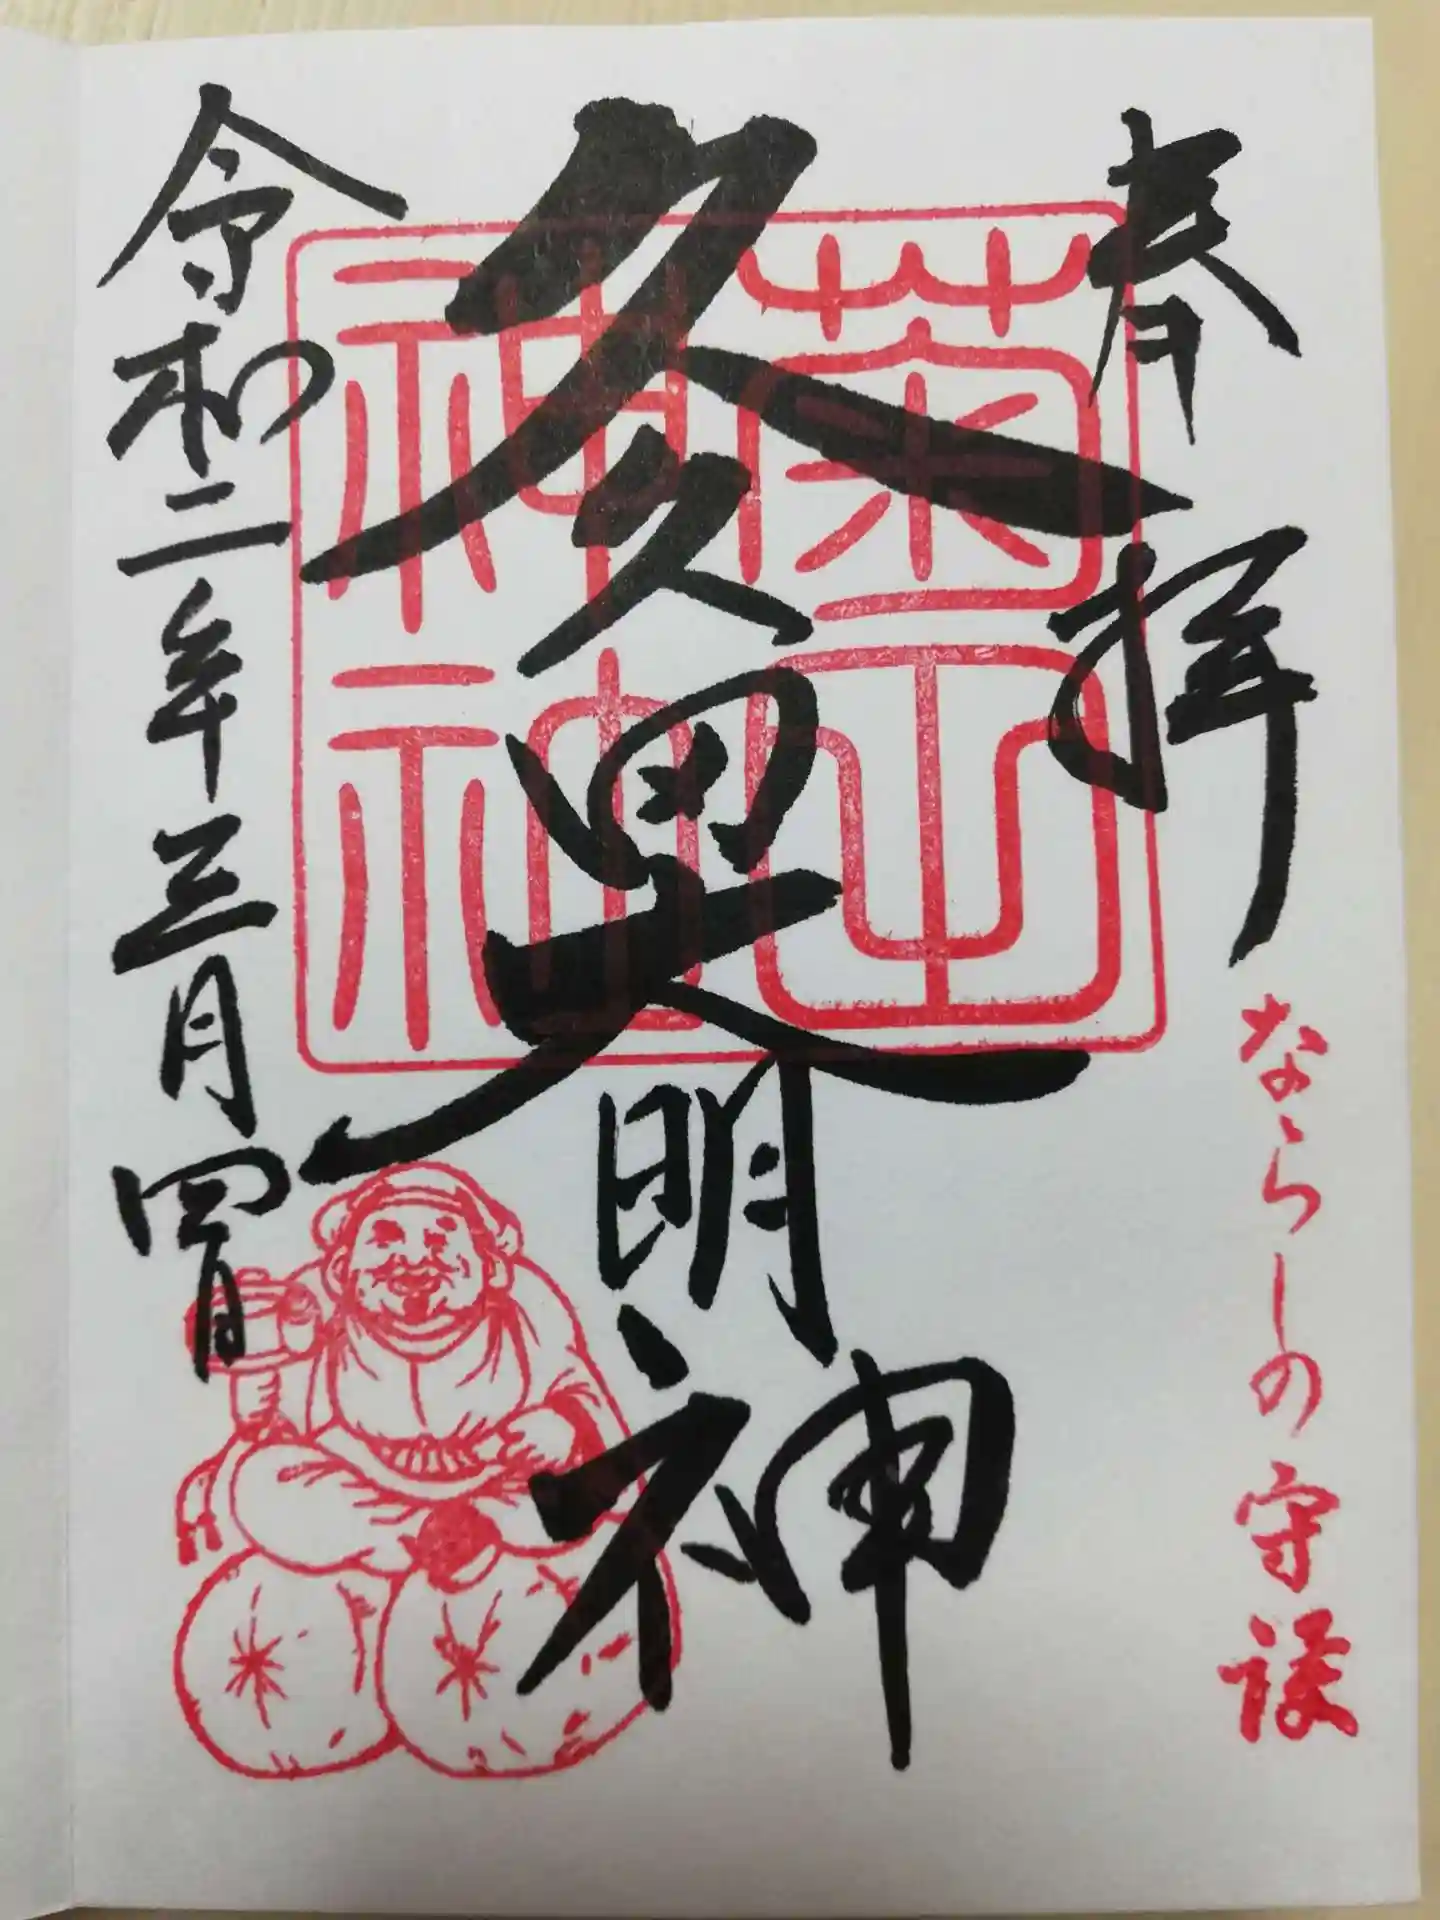 奉拝
ならしの守護
菊田
神社
久久田大明神
令和二年三月四日